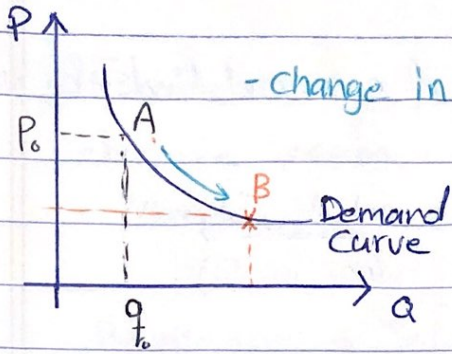 P
- change in
P₀
A
B
Demand
Curve
Q
q₀